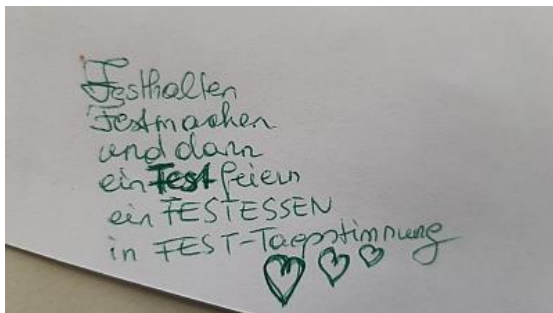 Festhalten
Festmachen
und dann
ein Fest feiern
ein FESTESSEN
in FEST-Tagsstimmung